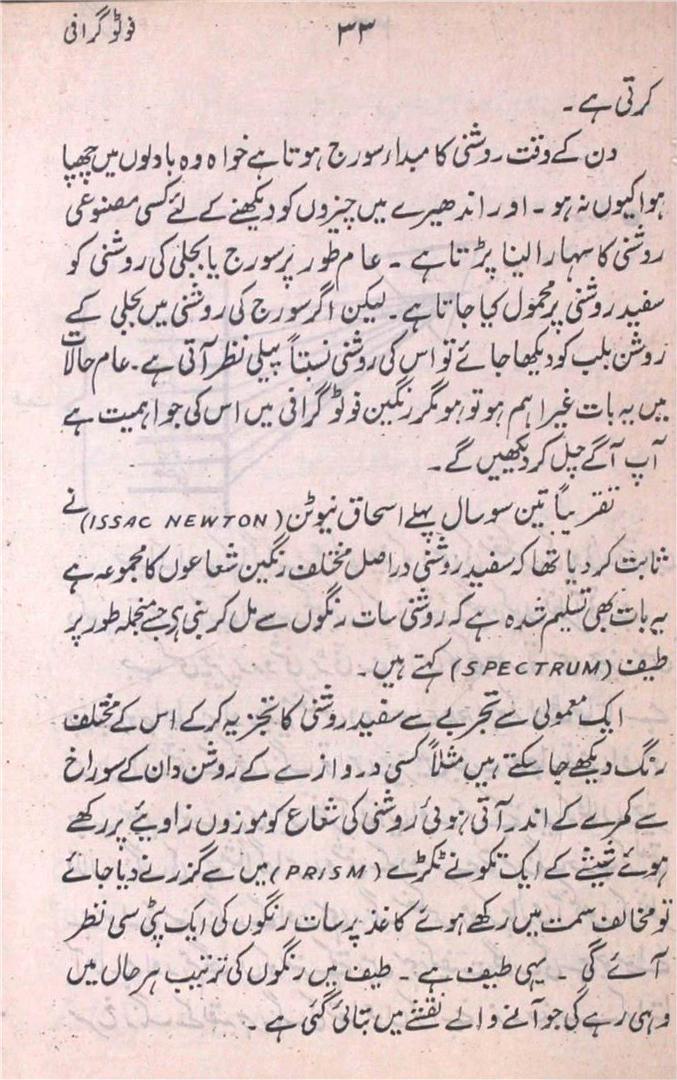 فوٹو گرافی
۳۳
کرتی ہے ۔
دن کے وقت روشنی کا مبداء سورج ہوتا ہے خواہ وہ بادلوں میں چھپا
ہوا کیوں نہ ہو ۔ اور اندھیرے میں چیزوں کو دیکھنے کے لئے کسی مصنوعی
روشنی کا سہارا لینا پڑتا ہے ۔ عام طور پر سورج یا بجلی کی روشنی کو
سفید روشنی پر محمول کیا جاتا ہے ۔ لیکن اگر سورج کی روشنی میں بجلی کے
روشن بلب کو دیکھا جائے تو اس کی روشنی نسبتاً پیلی نظر آتی ہے ۔ عام حالات
میں یہ بات غیر اہم ہو تو ہو مگر رنگین فوٹو گرافی میں اس کی جو اہمیت ہے
آپ آگے چل کر دیکھیں گے ۔
تقریباً تین سو سال پہلے اسحاق نیوٹن (ISSAC NEWTON) نے
ثابت کر دیا تھا کہ سفید روشنی دراصل مختلف رنگین شعاعوں کا مجموعہ ہے
یہ بات بھی تسلیم شدہ ہے کہ روشنی سات رنگوں سے مل کر بنی ہے جسے منجملہ طور پر
طیف (SPECTRUM) کہتے ہیں ۔
ایک معمولی سے تجربے سے سفید روشنی کا تجزیہ کر کے اس کے مختلف
رنگ دیکھے جا سکتے ہیں مثلاً کسی دروازے کے روشن دان کے سوراخ
سے کمرے کے اندر آتی ہوئی روشنی کی شعاع کو موزوں زاویئے پر رکھے
ہوئے شیشے کے ایک تکونے ٹکڑے (PRISM) میں سے گزرنے دیا جائے
تو مخالف سمت میں رکھے ہوئے کاغذ پر سات رنگوں کی ایک پٹی سی نظر
آئے گی ۔ یہی طیف ہے ۔ طیف میں رنگوں کی ترتیب ہر حال میں
وہی رہے گی جو آنے والے نقشے میں بتائی گئی ہے ۔